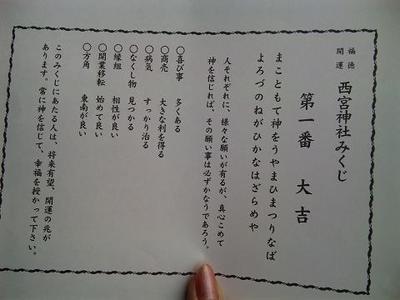 福徳
開運
西宮神社みくじ
第一番 大吉
まこともて神をうやまひまつりなば
よろづのねがひかなはざらめや
人それぞれに、様々な願いが有るが、真心こめて
神を信じれば、その願い事は必ずかなうであろう。
○喜び事 多くある
○商売 大きな利を得る
○病気 すっかり治る
○なくし物 見つかる
○縁組 相性が良い
○開業移転 始めて良い
○方角 東南が良い
このみくじにあたる人は、将来有望、開運の兆が
あります。常に神を信じて、幸福を授かって下さい。